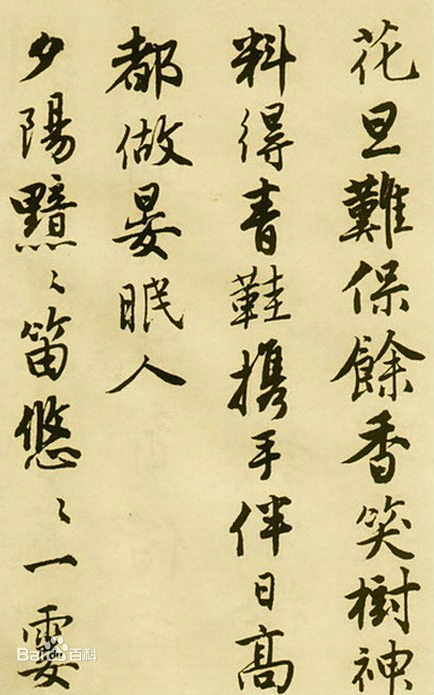 花旦難保餘香笑樹神
料得青鞋携手伴日高
都做晏眠人
夕陽黯〻笛悠〻一霎
Bai百科